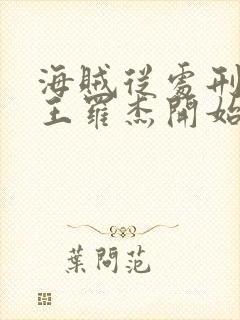 海賊從處刑
王羅杰開始
葉問范